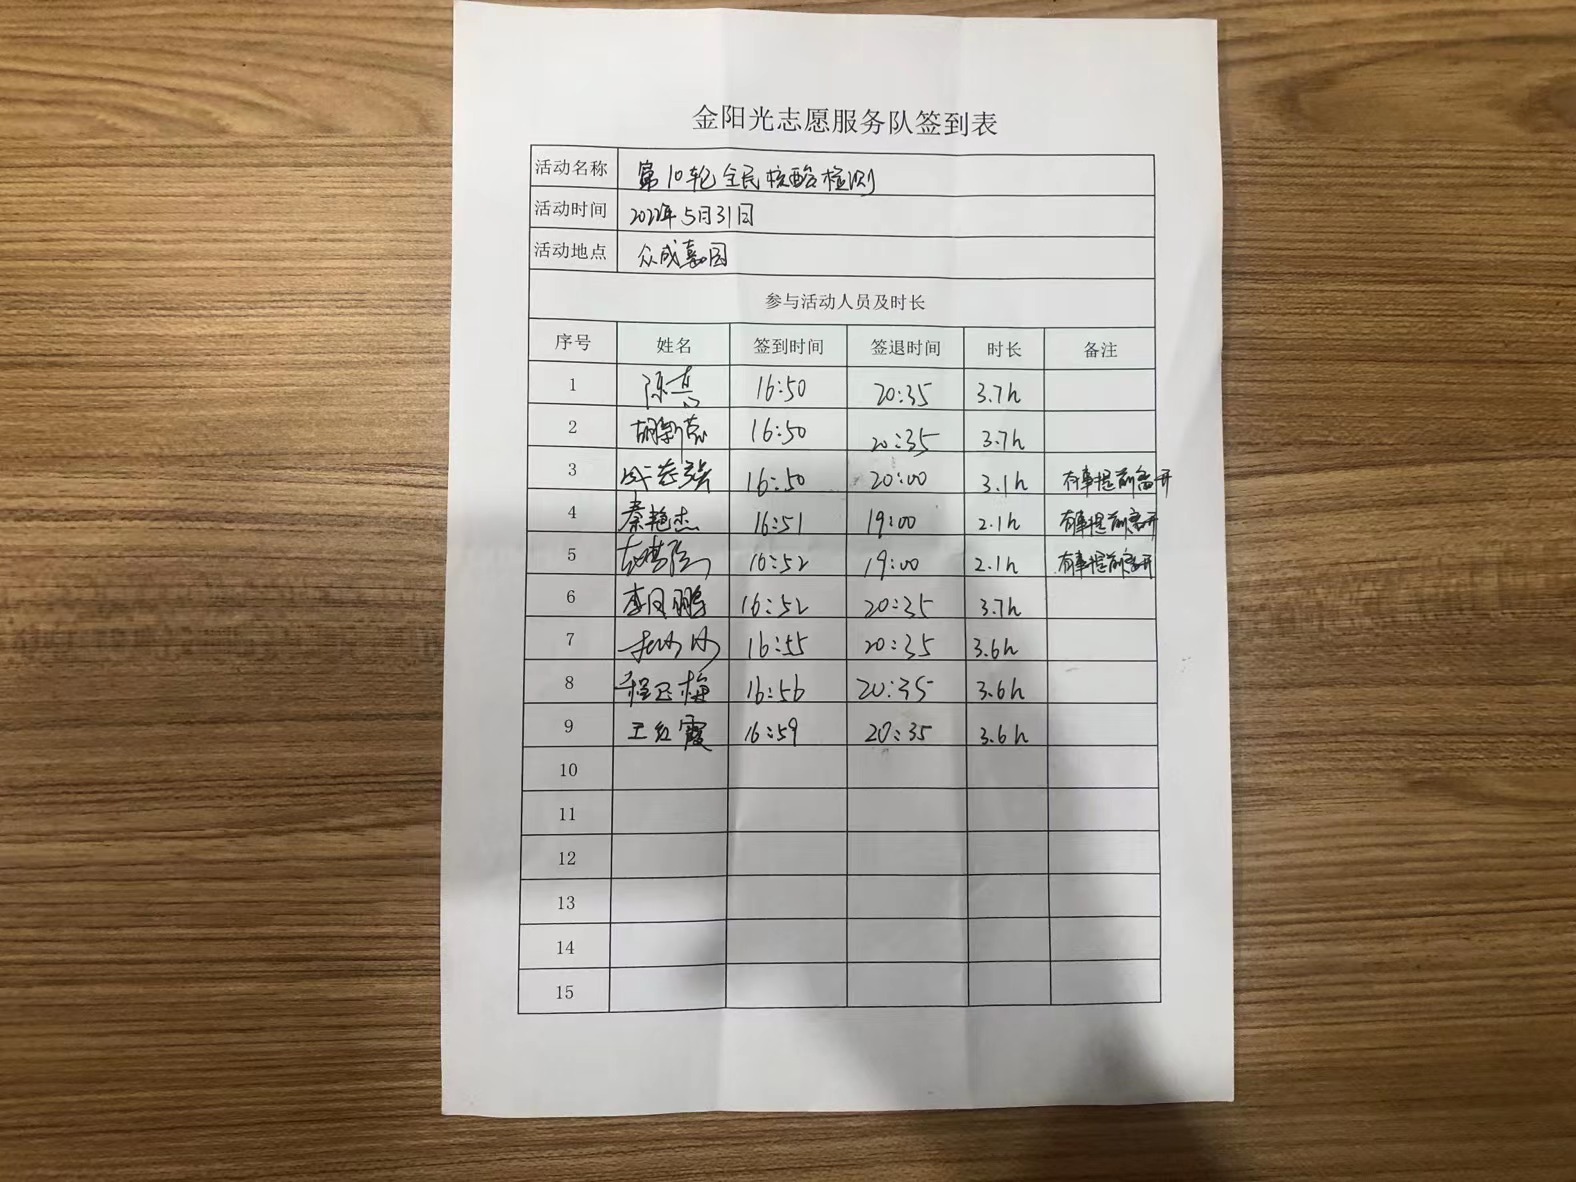 金阳光志愿服务队签到表
活动名称 第10轮全民核酸检测
活动时间 2022年5月31日
活动地点 众成嘉园
参与活动人员及时长
序号 姓名 签到时间 签退时间 时长 备注
1 16:50 20:35 3.7h
2 16:50 20:35 3.7h
3 16:50 20:00 3.1h 有事提前离开
4 秦艳杰 16:51 19:00 2.1h 有事提前离开
5 16:52 19:00 2.1h 有事提前离开
6 李凤鹏 16:52 20:35 3.7h
7 16:55 20:35 3.6h
8 16:56 20:35 3.6h
9 王红霞 16:59 20:35 3.6h
10
11
12
13
14
15